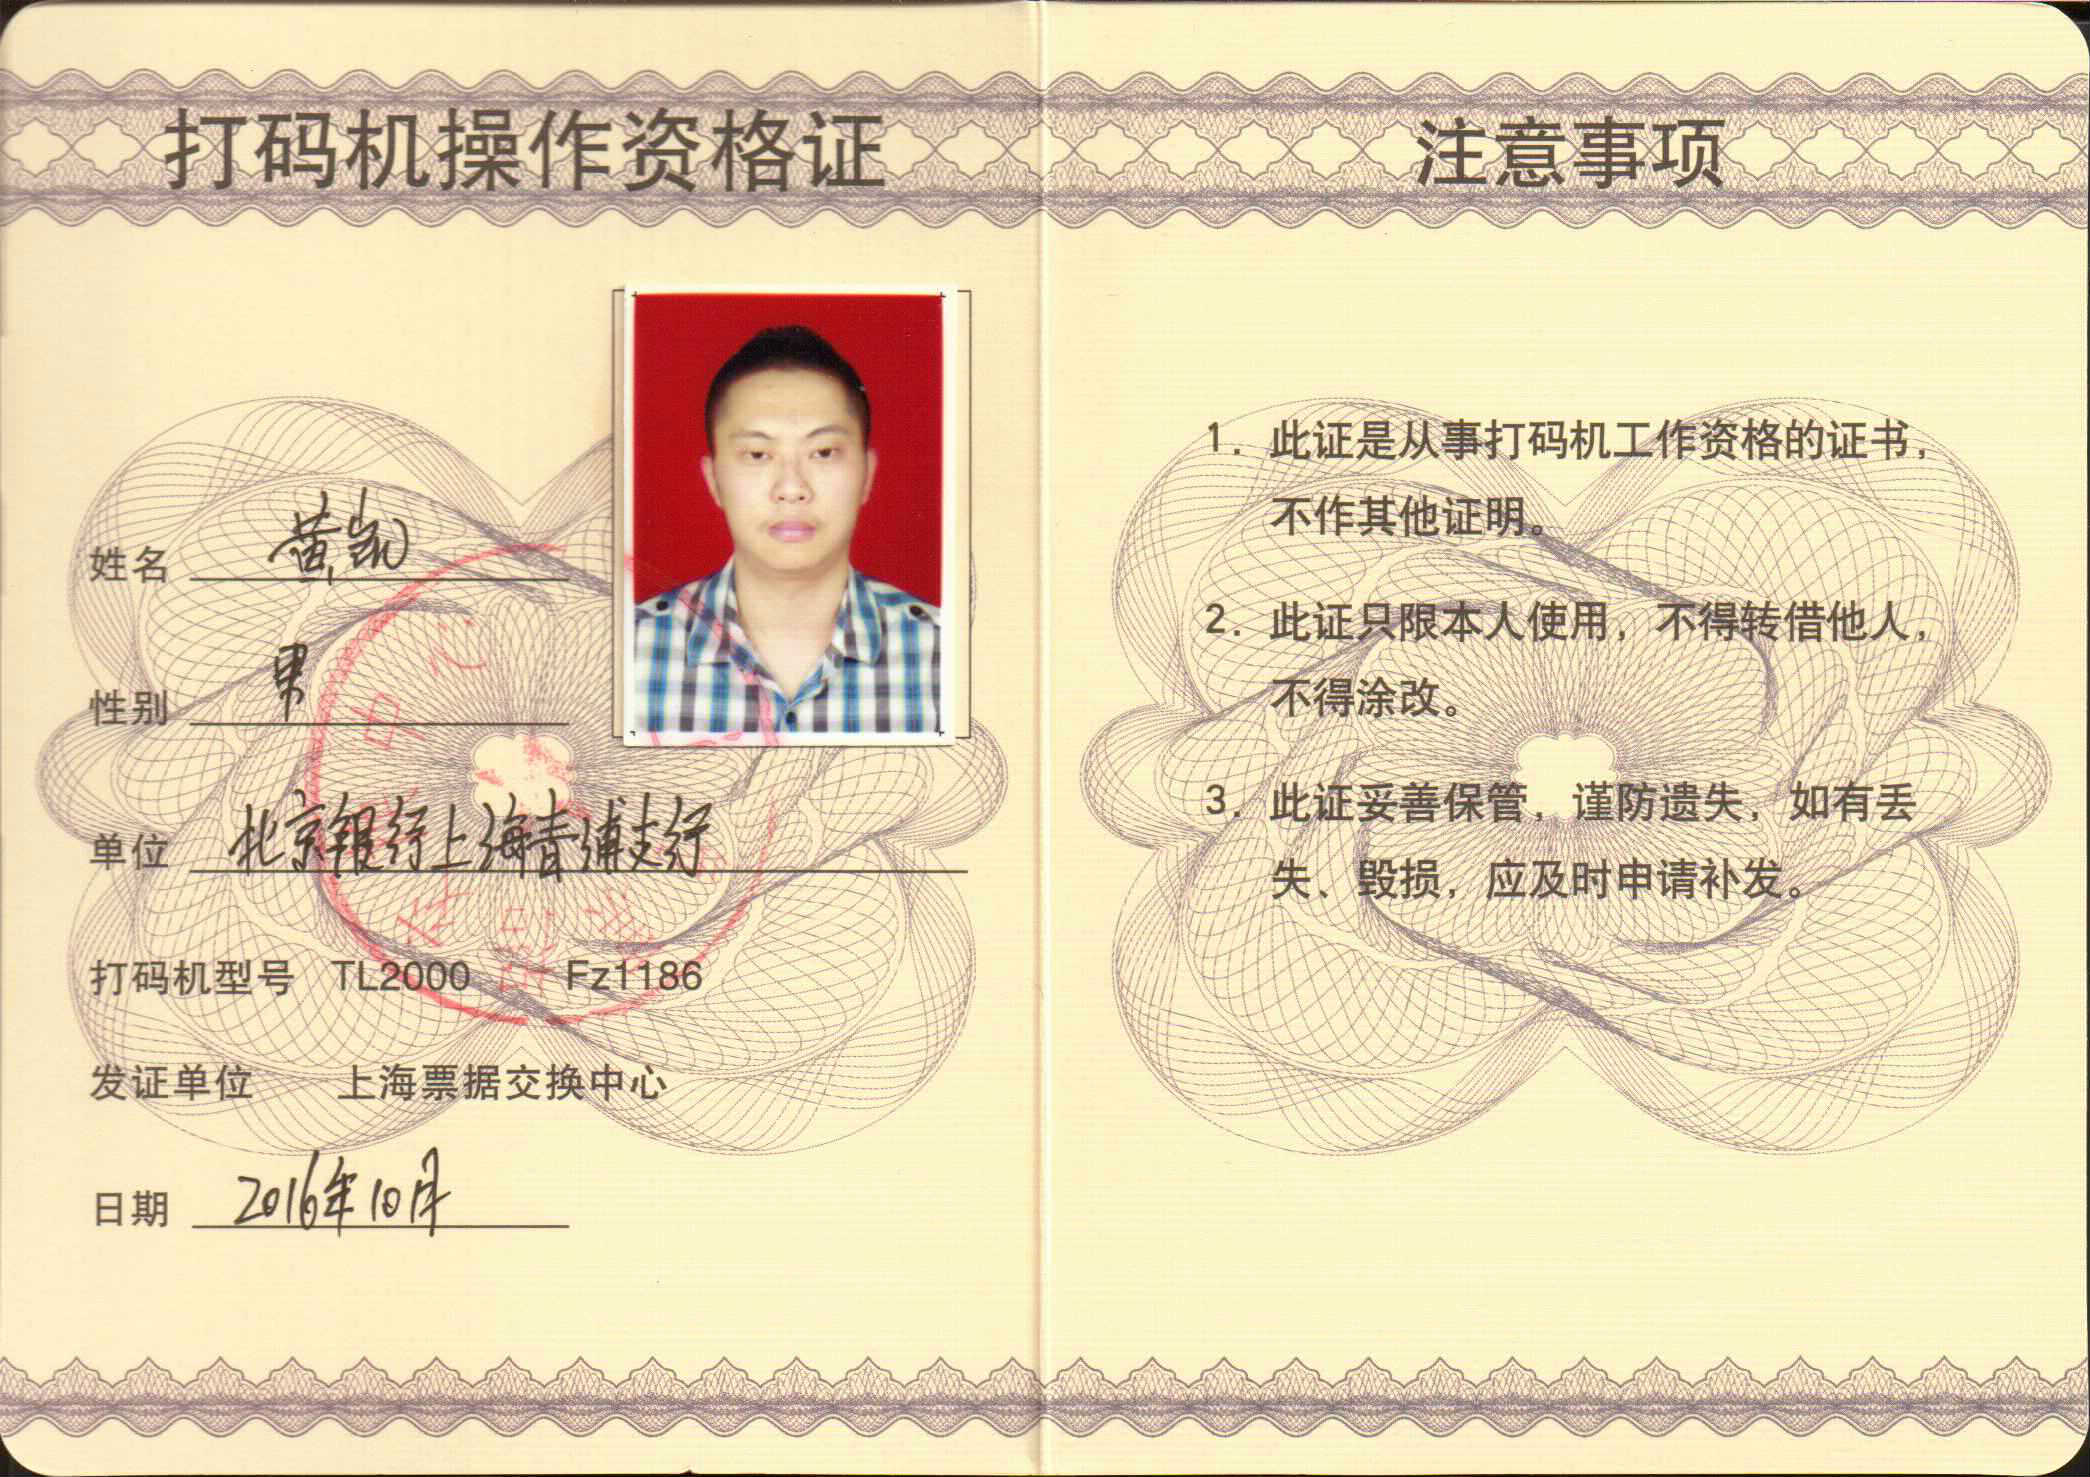 打码机操作资格证
姓名 黄凯
性别 男
单位 北京银行上海青浦支行
打码机型号 TL2000 Fz1186
发证单位 上海票据交换中心
日期 2016年10月
注意事项
1. 此证是从事打码机工作资格的证书，
不作其他证明。
2. 此证只限本人使用，不得转借他人，
不得涂改。
3. 此证妥善保管，谨防遗失，如有丢
失、毁损，应及时申请补发。